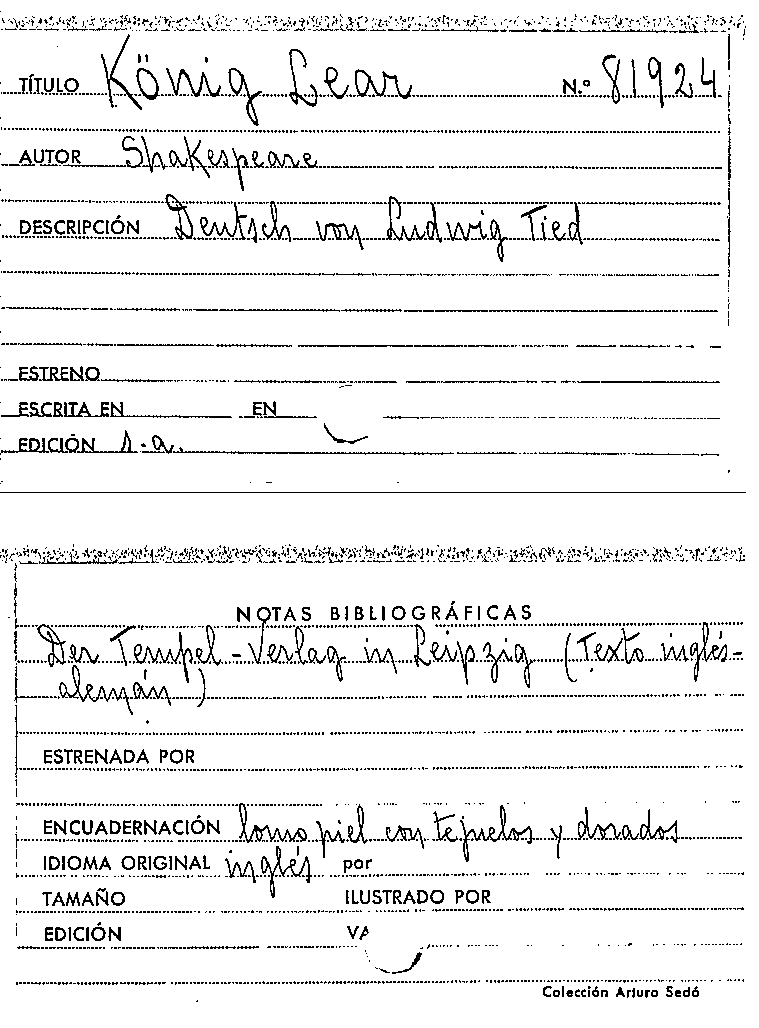 TÍTULO König Lear N.º 81924
AUTOR Shakespeare
DESCRIPCIÓN Deutsch von Ludwig Tied
ESTRENO
ESCRITA EN EN
EDICIÓN s.a.
NOTAS BIBLIOGRÁFICAS
Der Tempel-Verlag in Leipzig (Texto inglés-
alemán)
ESTRENADA POR
ENCUADERNACIÓN lomo piel con tejuelos y dorados
IDIOMA ORIGINAL inglés por
TAMAÑO ILUSTRADO POR
EDICIÓN VA
Colección Arturo Sedó